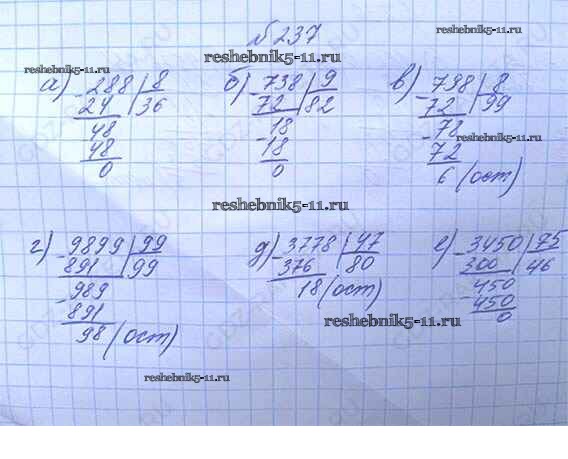 № 237
reshebnik5-11.ru
reshebnik5-11.ru
а) - 288 | 8
24 | 36
48
48
0
б) - 738 | 9
72 | 82
- 18
18
0
в) - 798 | 8
72 | 99
- 78
72
6 (ост)
reshebnik5-11.ru
reshebnik5-11.ru
г) - 9899 | 99
891 | 99
- 989
891
98 (ост)
д) - 3778 | 47
376 | 80
18 (ост)
е) - 3450 | 75
300 | 46
- 450
450
0
reshebnik5-11.ru
reshebnik5-11.ru